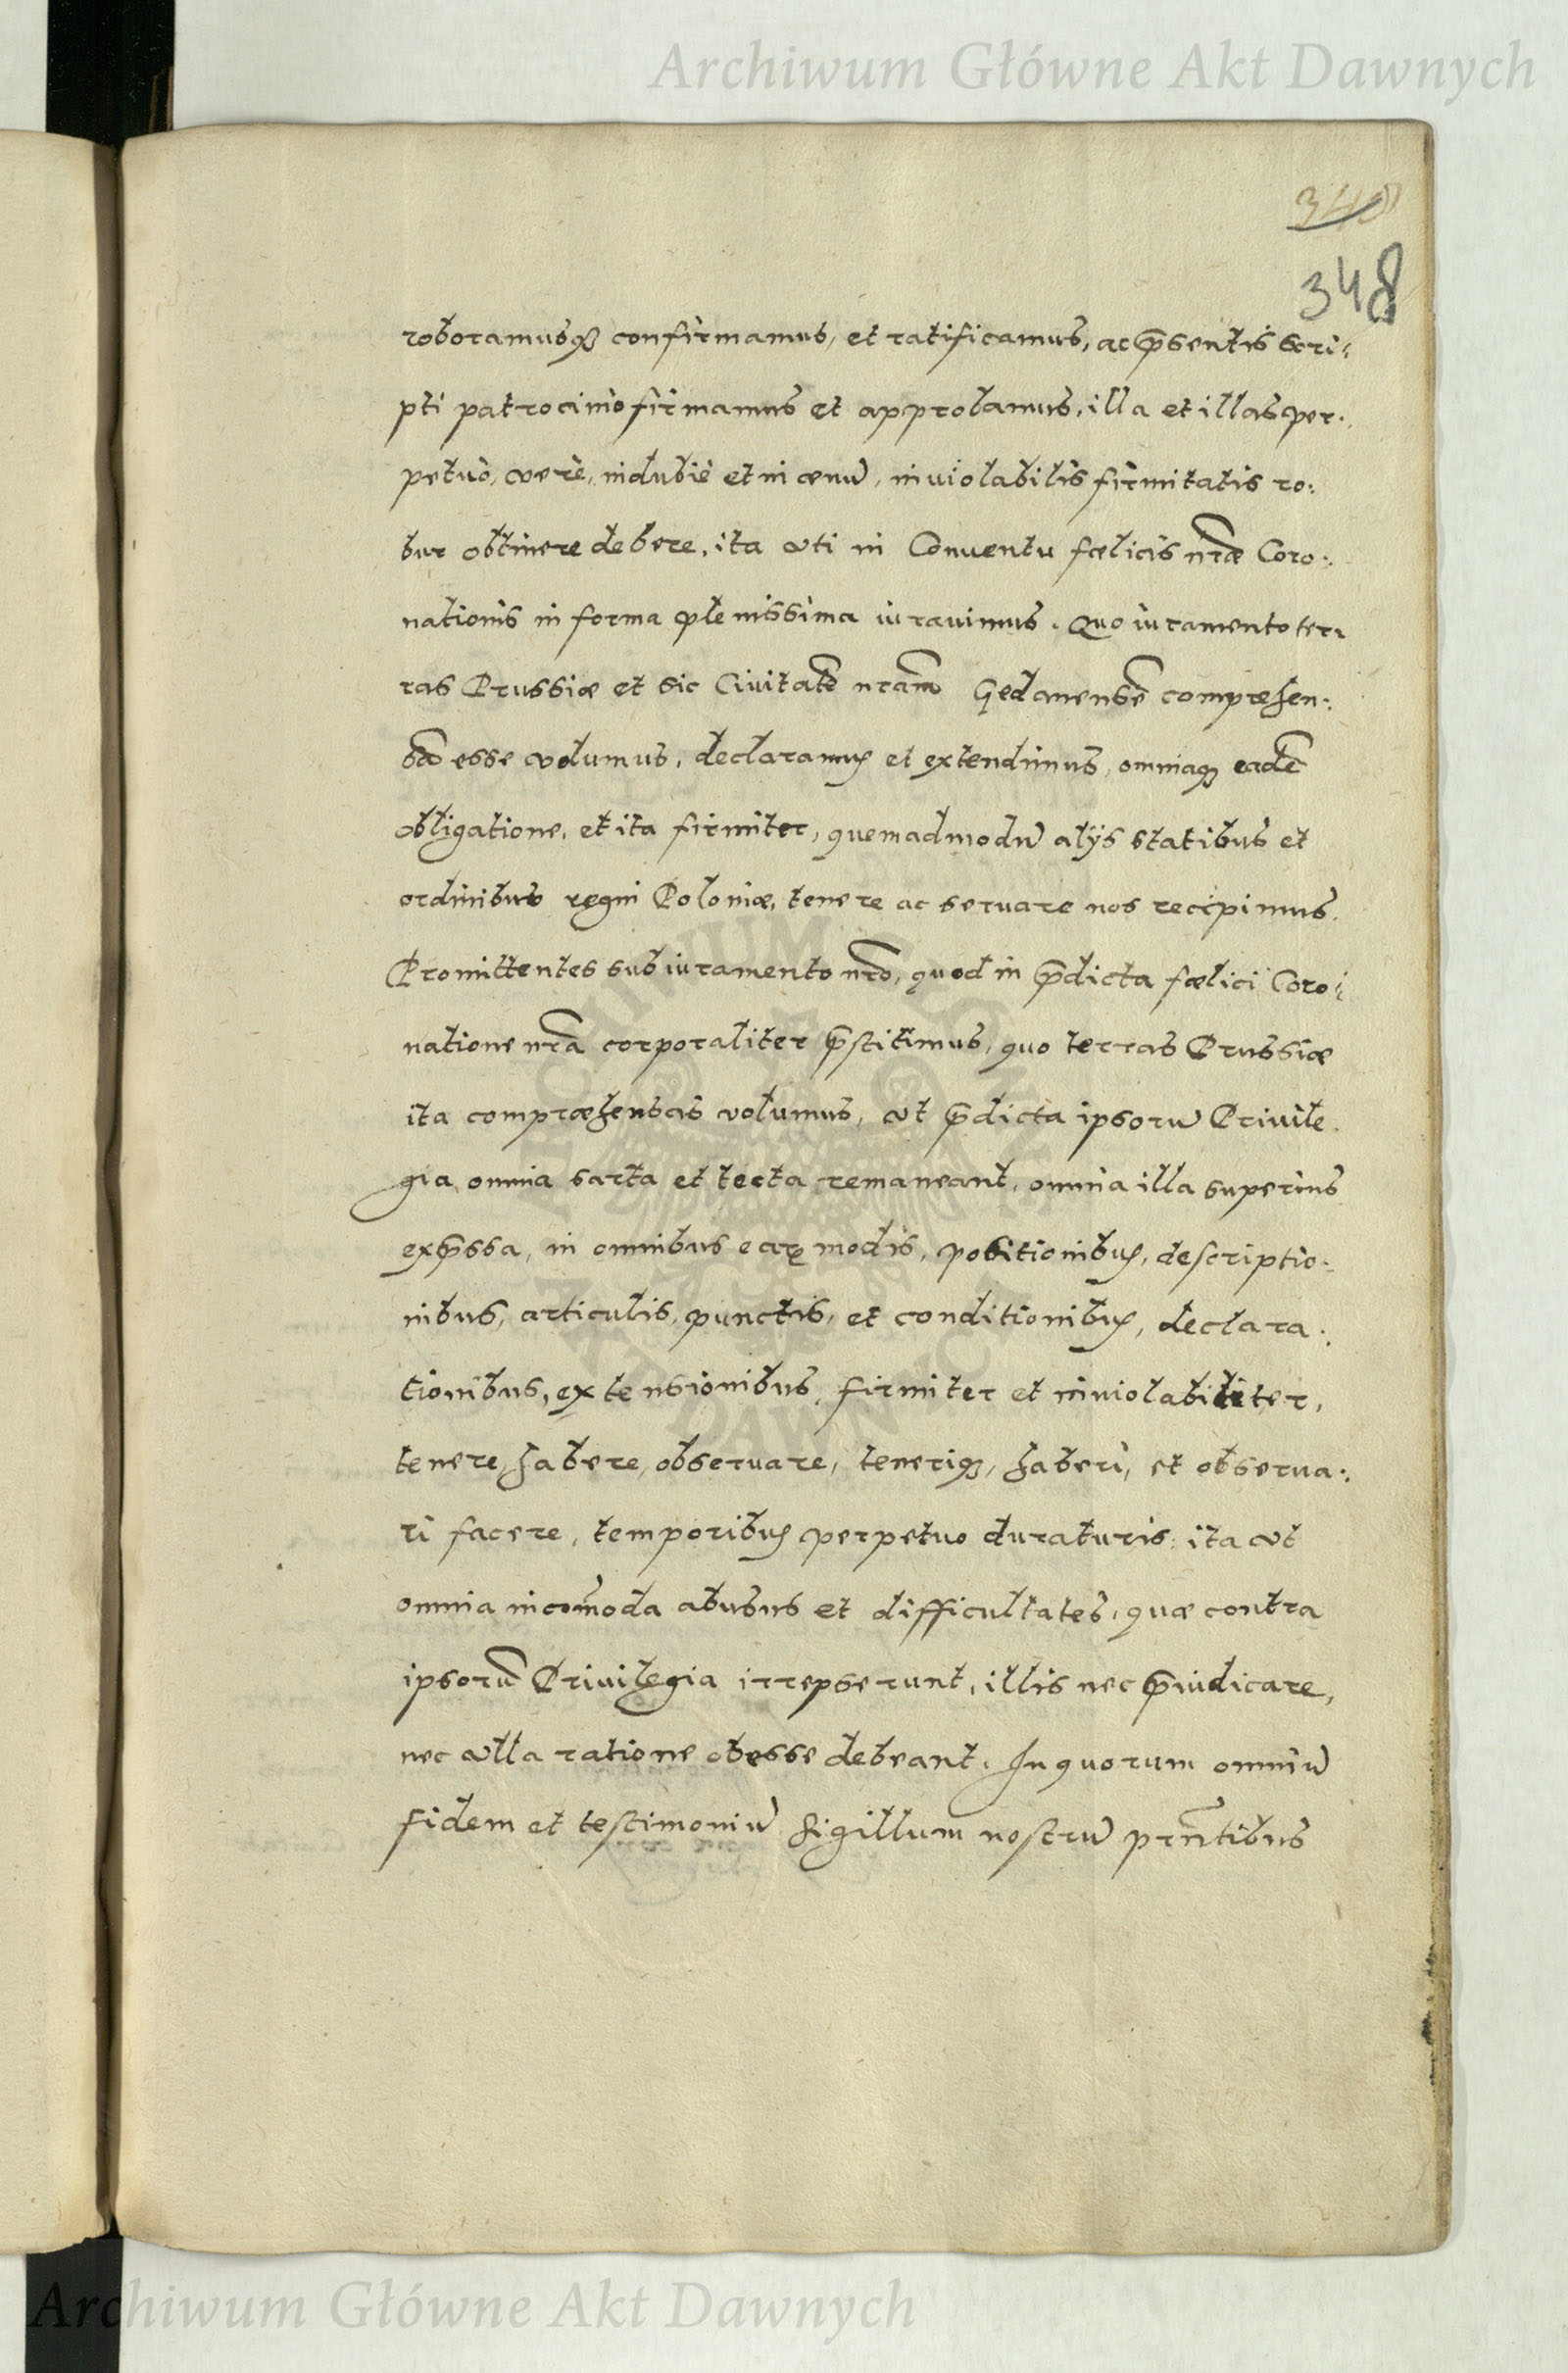 Archiwum Główne Akt Dawnych
348
roboramusq confirmamus, et ratificamus, ac p̃sentis scri:
pti patrocinio firmamus et approbamus, illa et illas per:
petuò, verè, indubiè et in ævũ, inviolabilis firmitatis ro:
bur obtinere debere, ita uti in Conuentu fœlicis nr̃æ Coro:
nationis in forma plenissima iurauimus. Quo iuramento ter:
ras Prussiæ et sic Ciuitatẽ nr̃am Gedanensẽ comprehen:
sã esse volumus, declaramus et extendimus, omniaq eadẽ
obligatione, et ita firmiter, quemadmodũ alijs statibus et
ordinibus regni Poloniæ, tenere ac seruare nos recipimus.
Promittentes sub iuramento nr̃o, quod in p̃dicta fœlici Coro:
natione nr̃a corporaliter p̃stitimus, quo terras Prussiæ
ita compræhensas volumus, ut p̃dicta ipsorũ Priuile:
gia omnia sarta et tecta remaneant, omnia illa superius
exp̃ssa, in omnibus eaꝝ modis, positionibus, descriptio:
nibus, articulis, punctis, et conditionibus, declara:
tionibus, extensionibus, firmiter et inuiolabiliter,
tenere, habere, obseruare, teneriq, haberi, et obserua:
ri facere, temporibus perpetuo duraturis: ita ut
omnia incom̃oda abusus et difficultates, quæ contra
ipsorũ Priuilegia irrepserunt, illis nec p̃iudicare,
nec ulla ratione obesse debeant. In quorum omniũ
fidem et testimoniũ Sigillum nostrũ prñtibus
Archiwum Główne Akt Dawnych